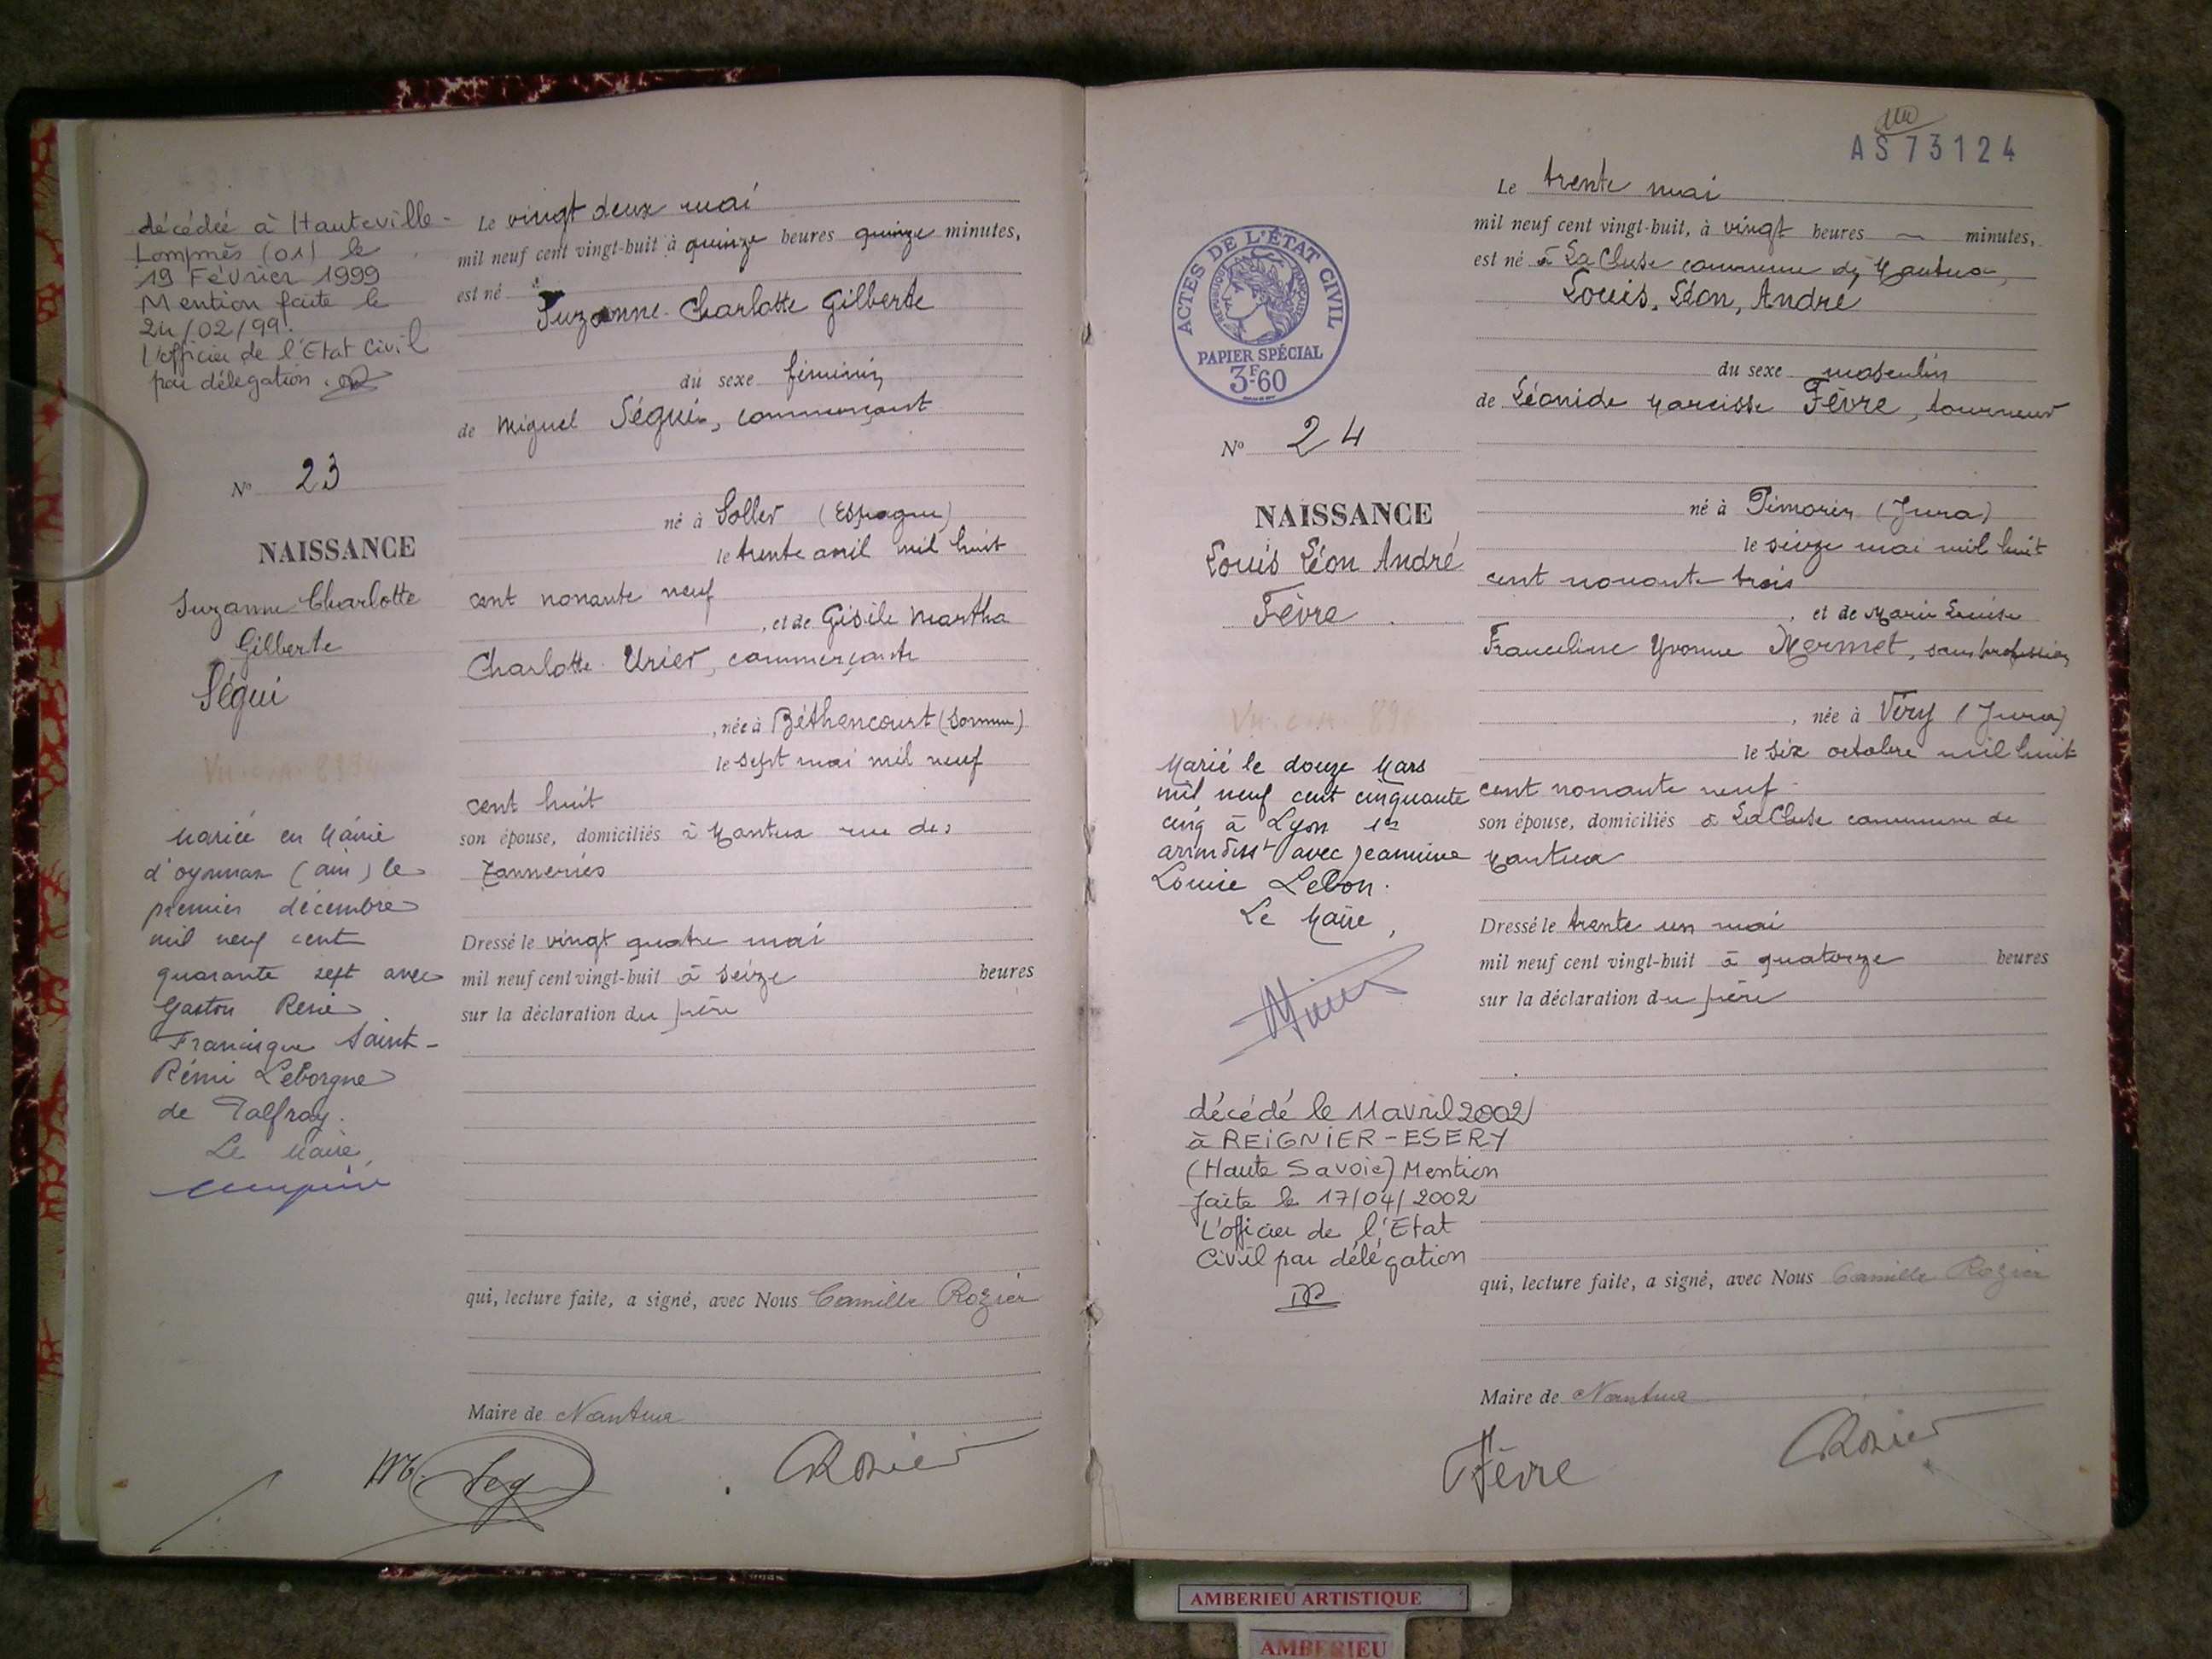 décédée à Hauteville-
Lompnès (01) le
19 Février 1999
Mention faite le
24/02/99.
l'officier de l'Etat Civil
par délégation.
N° 23
NAISSANCE
Suzanne Charlotte
Gilberte
Ségui
Mariée en Mairie
d'oyonnax (ain) le
premier décembre
mil neuf cent
quarante sept avec
Gaston René
Francisque Saint-
Rémi Leborgne
de Talfray.
Le Maire,
Le vingt deux mai
mil neuf cent vingt-huit à quinze heures quinze minutes,
est né
Suzanne Charlotte Gilberte
du sexe féminin
de Miguel Ségui, commerçant
né à Soller (Espagne)
le trente avril mil huit
cent nonante neuf
, et de Gisèle Martha
Charlotte Urier, commerçante
, née à Béthencourt (Somme)
le sept mai mil neuf
cent huit
son épouse, domiciliés à Nantua rue des
Tanneries
Dressé le vingt quatre mai
mil neuf cent vingt-huit à seize heures
sur la déclaration du père
qui, lecture faite, a signé, avec Nous Camille Rozier
Maire de Nantua
Rozier
AS 73124
ACTES DE L'ÉTAT CIVIL
RÉPUBLIQUE FRANÇAISE
PAPIER SPÉCIAL
3F60
N° 24
NAISSANCE
Louis Léon André
Fèvre
Marié le douze Mars
mil neuf cent cinquante
cinq à Lyon 1er
arrondisst avec Jeannine
Louise Lebon.
Le Maire,
décédé le 11 avril 2002
à REIGNIER-ESERY
(Haute Savoie) Mention
faite le 17/04/2002
L'officier de l'Etat
Civil par délégation
Le trente mai
mil neuf cent vingt-huit, à vingt heures — minutes,
est né à La Cluse commune de Nantua,
Louis, Léon, André
du sexe masculin
de Léonide Narcisse Fèvre, tourneur
né à Pimorin (Jura)
le seize mai mil huit
cent nonante trois
, et de Marie Louise
Franceline Yvonne Mermet, sans profession
, née à Viry (Jura)
le six octobre mil huit
cent nonante neuf
son épouse, domiciliés à La Cluse commune de
Nantua
Dressé le trente un mai
mil neuf cent vingt-huit à quatorze heures
sur la déclaration du père
qui, lecture faite, a signé, avec Nous Camille Rozier
Maire de Nantua
Fèvre
Rozier
AMBERIEU ARTISTIQUE
AMBERIEU